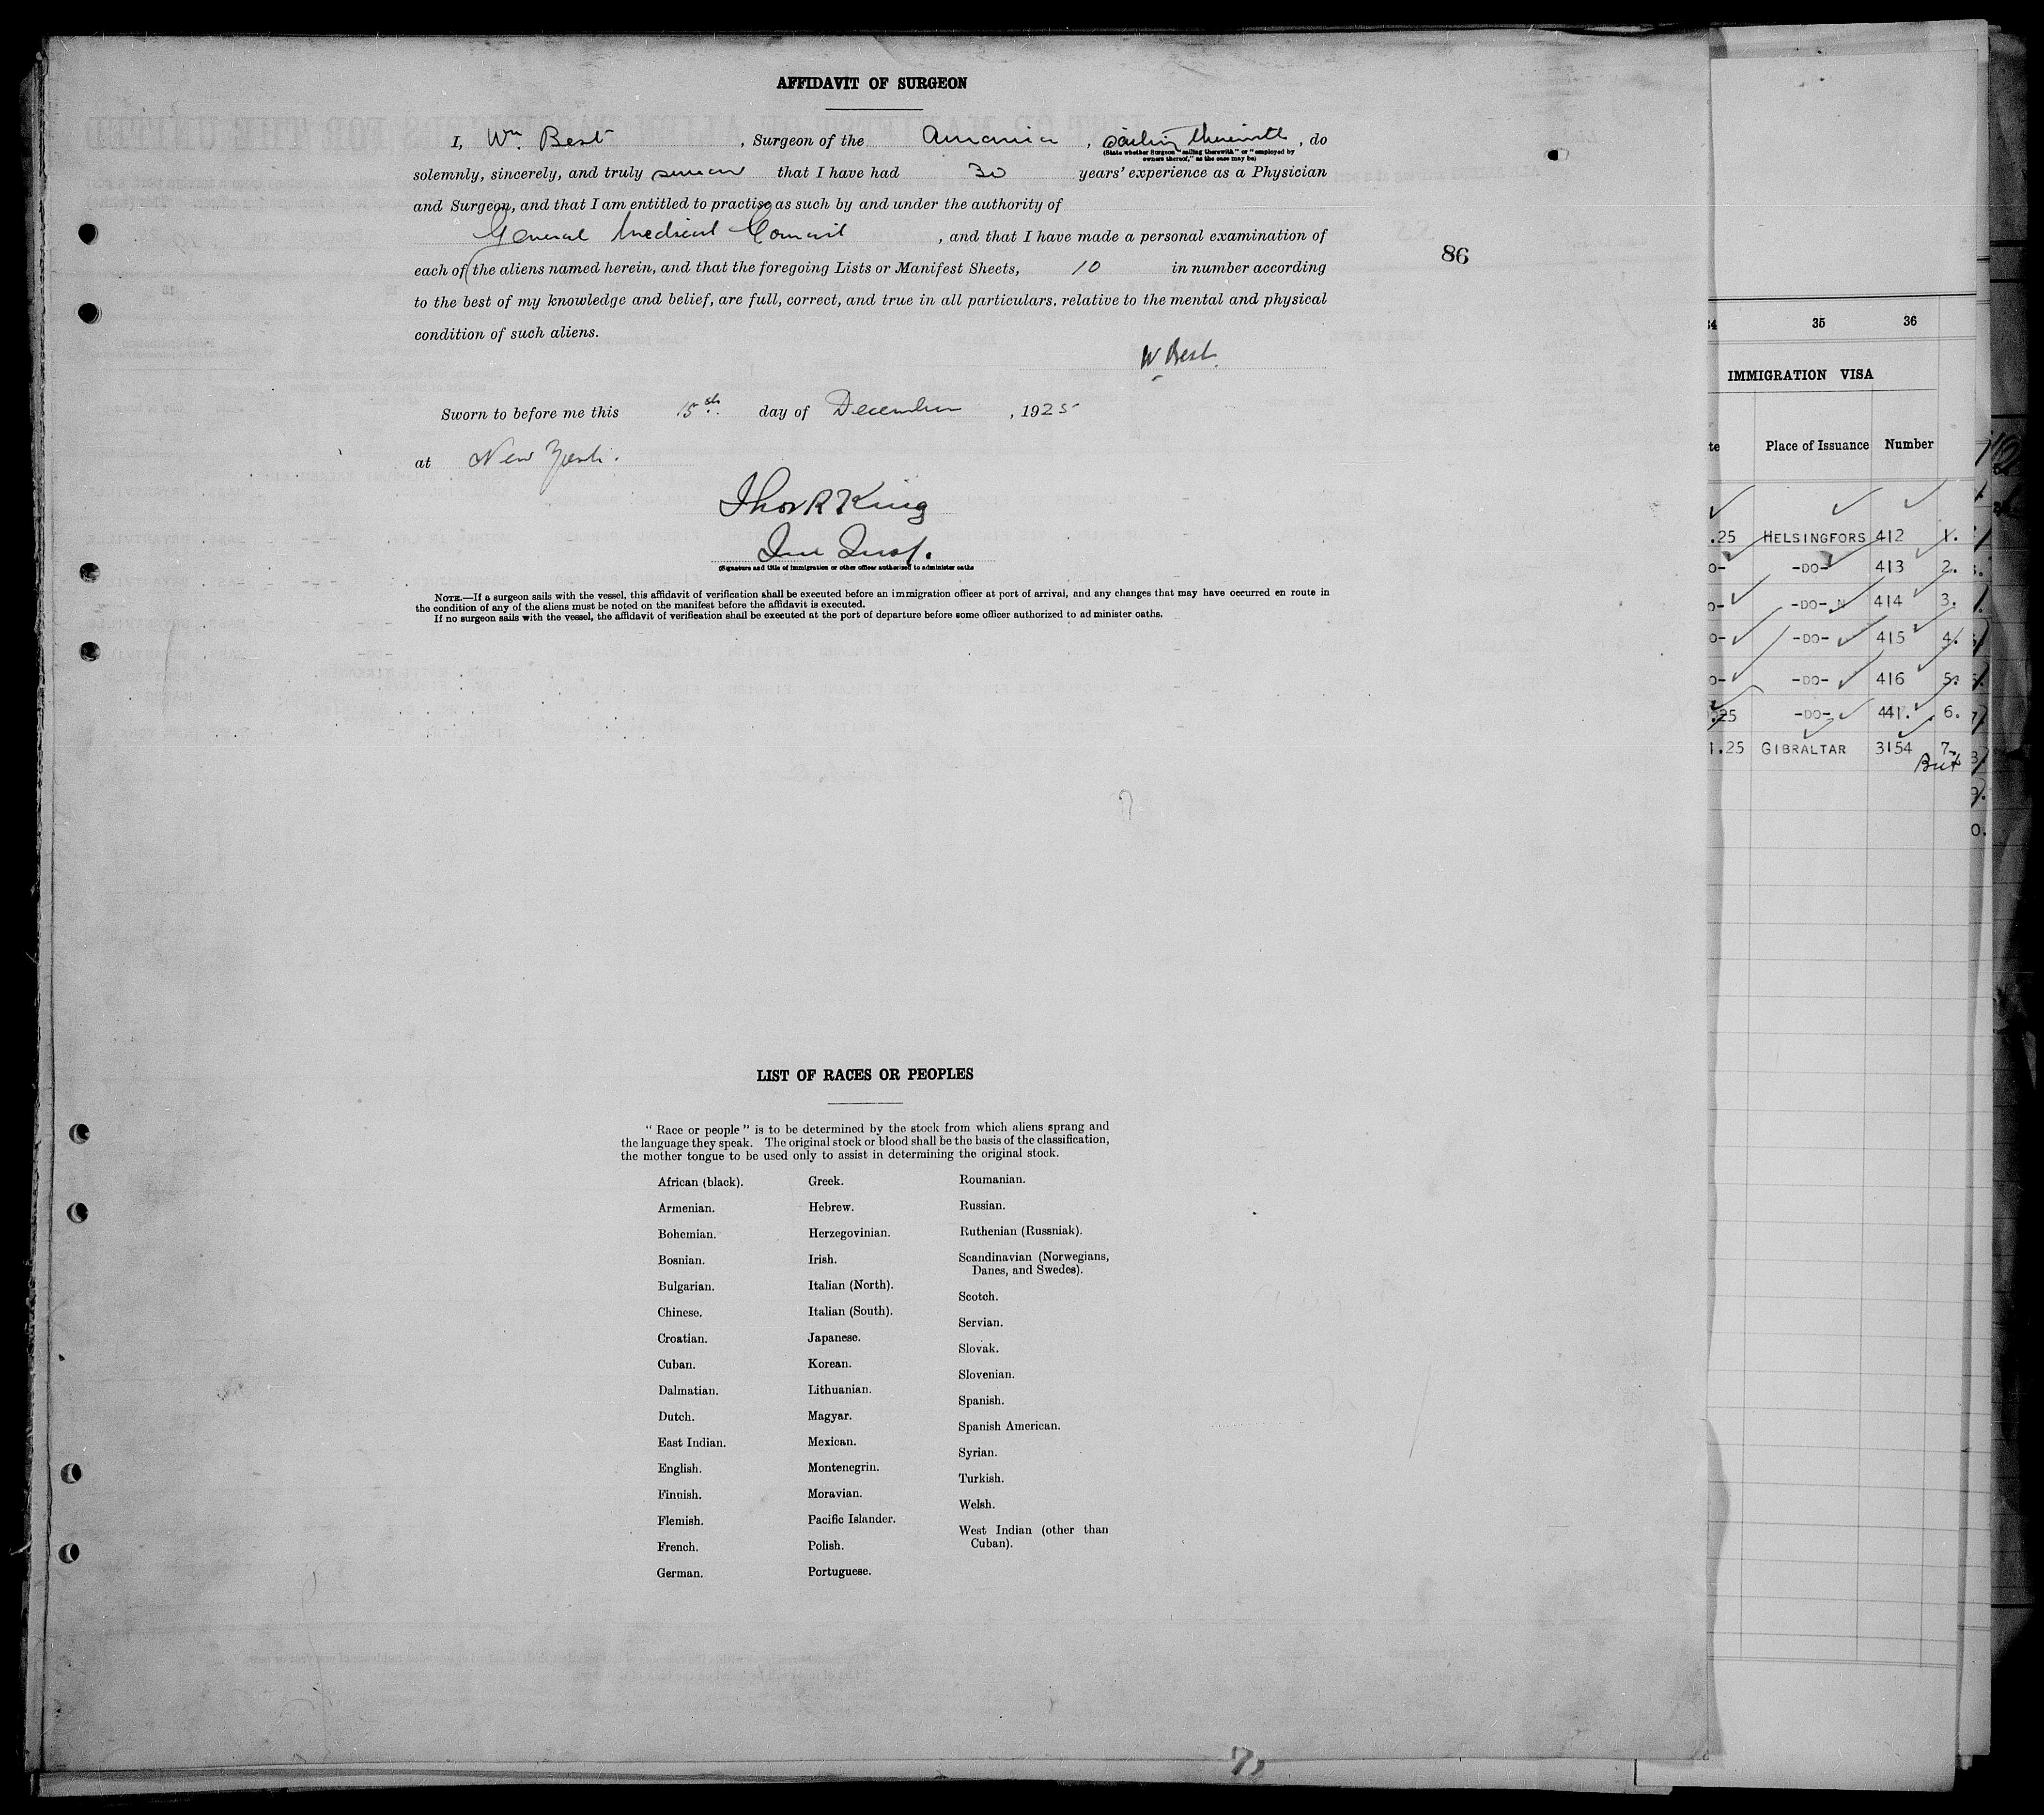 AFFIDAVIT OF SURGEON
I, Wm Best , Surgeon of the , sailing therewith , do
(State whether Surgeon "sailing therewith" or "employed by
owners thereof," as the case may be)
solemnly, sincerely, and truly swear that I have had 30 years' experience as a Physician
and Surgeon, and that I am entitled to practise as such by and under the authority of
General Medical Council , and that I have made a personal examination of
each of the aliens named herein, and that the foregoing Lists or Manifest Sheets, 10 in number according
to the best of my knowledge and belief, are full, correct, and true in all particulars, relative to the mental and physical
condition of such aliens.
W Best.
Sworn to before me this 15th day of December , 1925
at New York.
Thos R King
Imm Insp.
(Signature and title of immigration or other officer authorized to administer oaths
NOTE.—If a surgeon sails with the vessel, this affidavit of verification shall be executed before an immigration officer at port of arrival, and any changes that may have occurred en route in
the condition of any of the aliens must be noted on the manifest before the affidavit is executed.
If no surgeon sails with the vessel, the affidavit of verification shall be executed at the port of departure before some officer authorized to administer oaths.
86
LIST OF RACES OR PEOPLES
"Race or people" is to be determined by the stock from which aliens sprang and
the language they speak. The original stock or blood shall be the basis of the classification,
the mother tongue to be used only to assist in determining the original stock.
African (black).
Armenian.
Bohemian.
Bosnian.
Bulgarian.
Chinese.
Croatian.
Cuban.
Dalmatian.
Dutch.
East Indian.
English.
Finnish.
Flemish.
French.
German.
Greek.
Hebrew.
Herzegovinian.
Irish.
Italian (North).
Italian (South).
Japanese.
Korean.
Lithuanian.
Magyar.
Mexican.
Montenegrin.
Moravian.
Pacific Islander.
Polish.
Portuguese.
Roumanian.
Russian.
Ruthenian (Russniak).
Scandinavian (Norwegians,
Danes, and Swedes).
Scotch.
Servian.
Slovak.
Slovenian.
Spanish.
Spanish American.
Syrian.
Turkish.
Welsh.
West Indian (other than
Cuban).
35 36
IMMIGRATION VISA
Place of Issuance Number
.25 HELSINGFORS 412 1.
-DO- 413 2.
-DO- 414 3.
-DO- 415 4.
-DO- 416 5.
.25 -DO- 441. 6.
1.25 GIBRALTAR 3154 7.